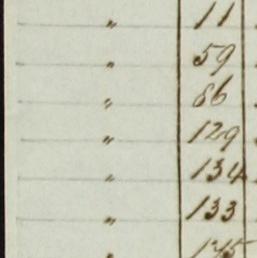 " 11
" 59
" 86
" 129
" 134
" 133
" 145